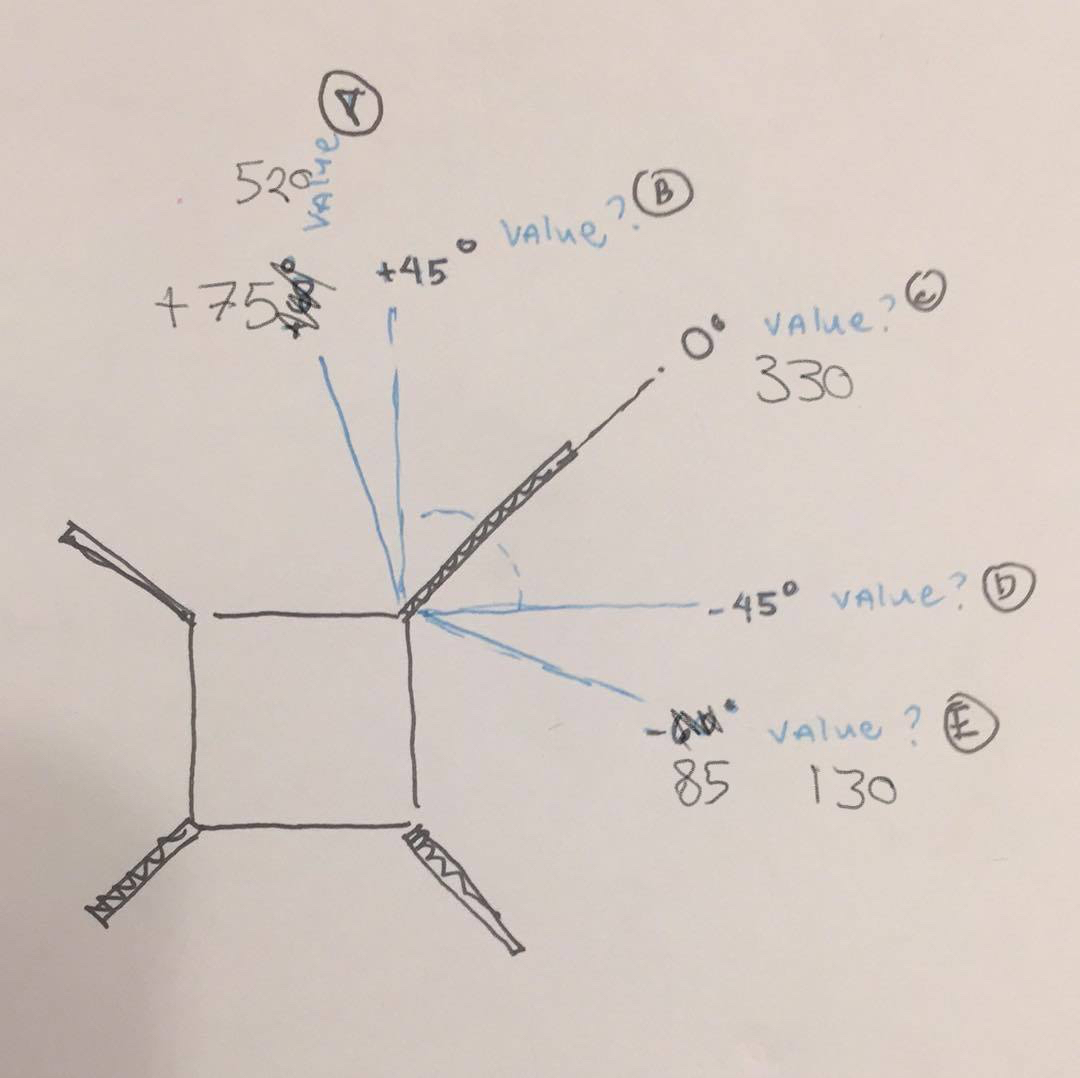 A
520 value
+75°
+45° value? B
0° value? C
330
-45° value? D
- ° value? E
85 130